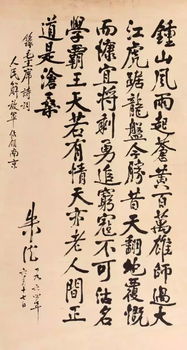 鍾山風雨起蒼黄百萬雄師過大
江虎踞龍盤今勝昔天翻地覆慨
而慷宜將剩勇追窮寇不可沽名
學霸王天若有情天亦老人間正
道是滄桑
錄毛主席詩詞
人民解放軍佔領南京
朱德
一九六四年